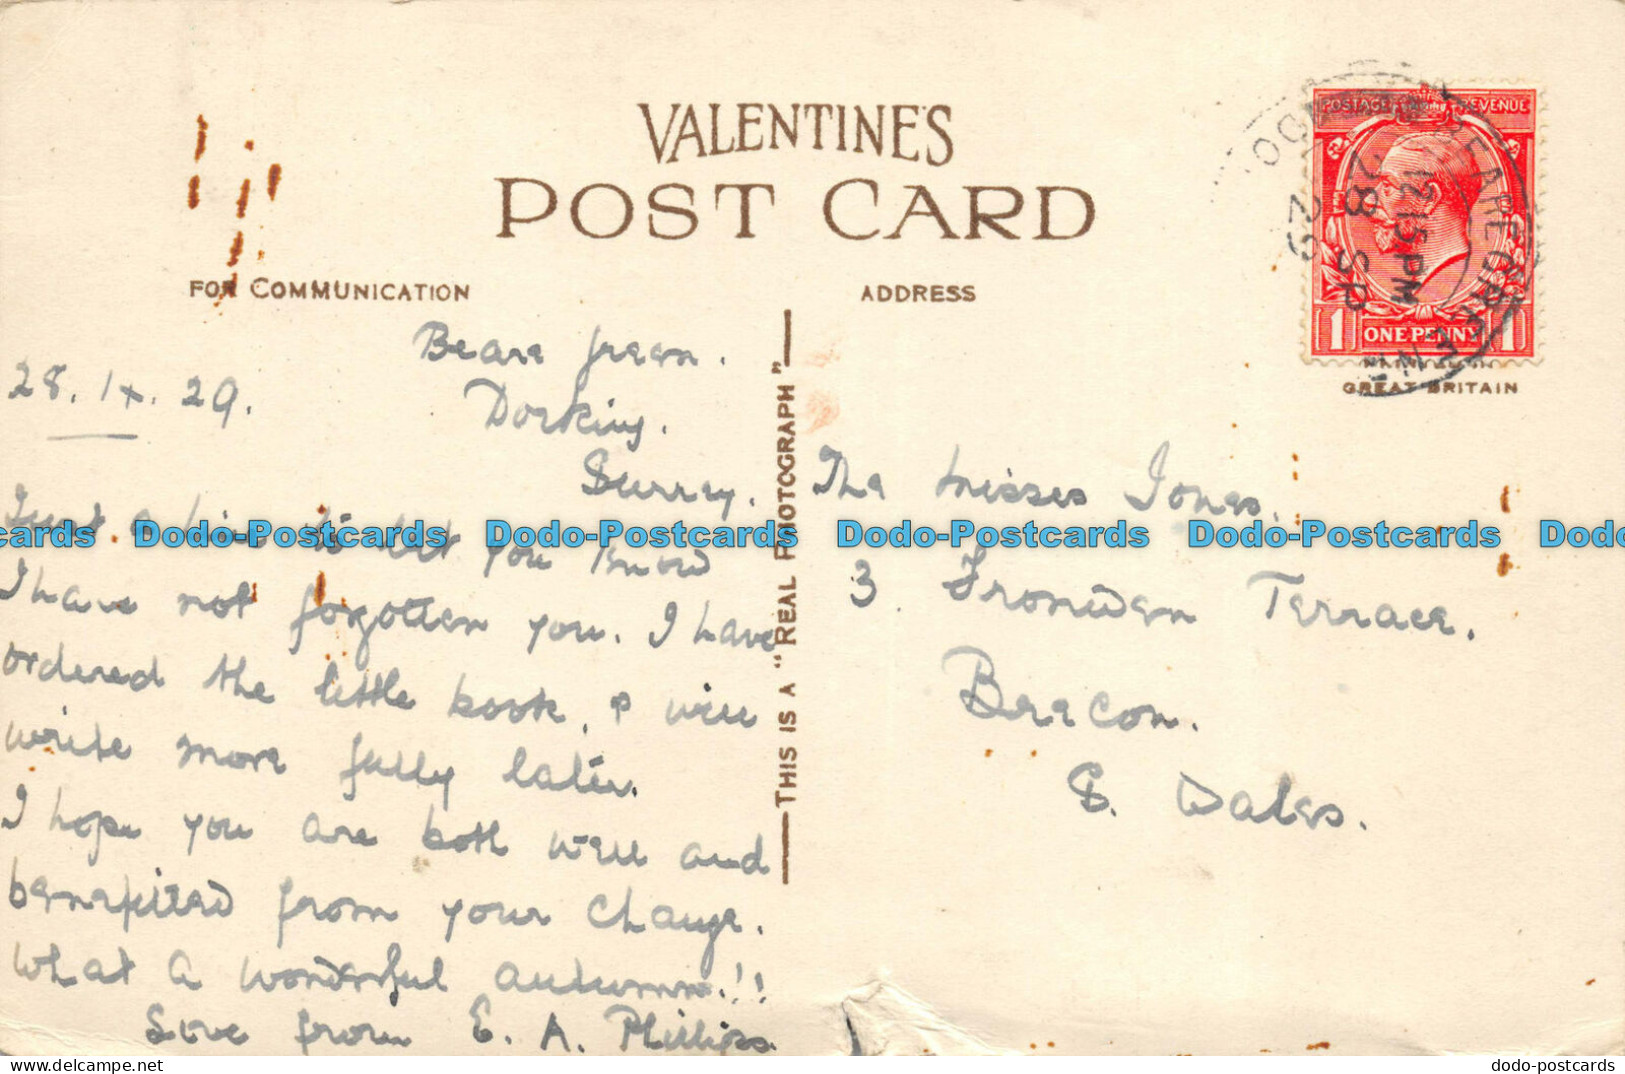 VALENTINE'S
POST CARD
FOR COMMUNICATION
ADDRESS
POSTAGE REVENUE
1 ONE PENNY 1
BEARE GREEN
12.15 PM
28 SP
29
GREAT BRITAIN
THIS IS A "REAL PHOTOGRAPH"
Beare Green.
Dorking.
Surrey.
28. IX. 29.
Just a line to let you know
I have not forgotten you. I have
ordered the little book, & will
write more fully later.
I hope you are both well and
benefited from your change.
What a wonderful autumn!!
Love from E. A. Phillips
The Misses Jones.
3 Fronwen Terrace.
Brecon.
S. Wales.
cards Dodo-Postcards Dodo-Postcards Dodo-Postcards Dodo-Postcards Dodo
dodo-postcards